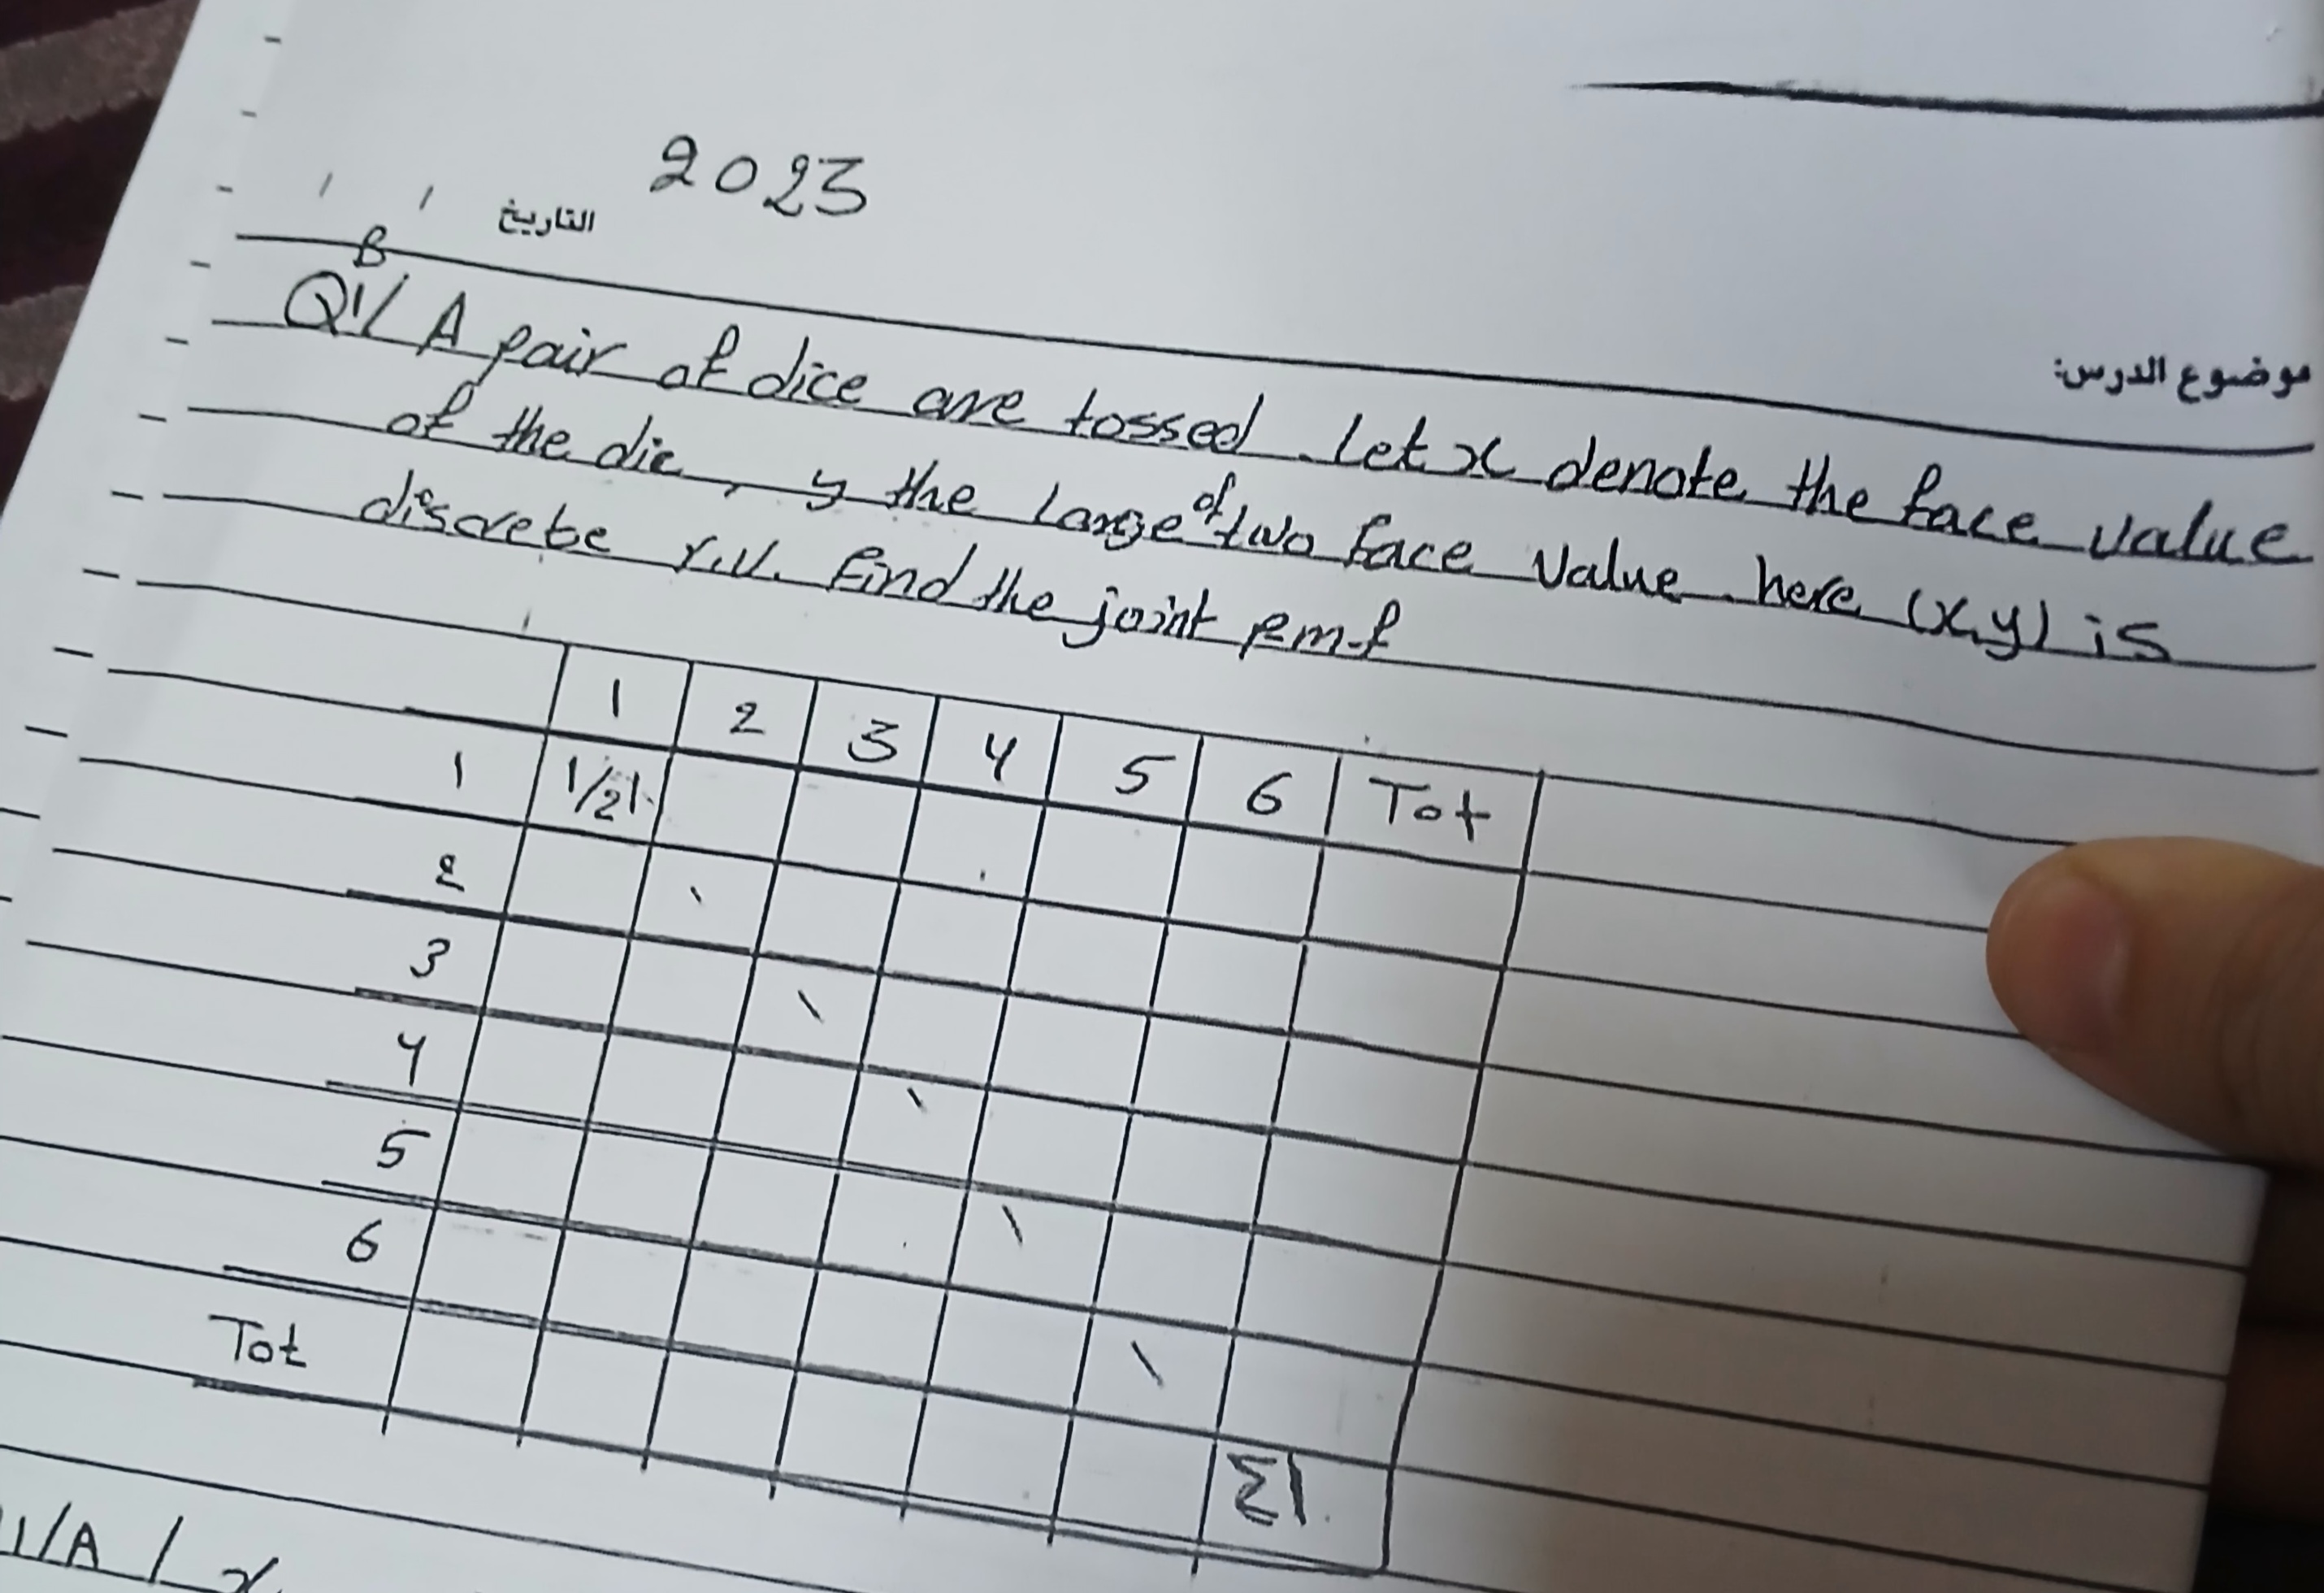 2023
التاريخ / /
موضوع الدرس:
B
Q1/ A pair of dice are tossed. Let x denote the face value
of the die, y the large of two face value here (x,y) is
discrete r.v. find the joint p.m.f
1 2 3 4 5 6 Tot
1 1/21
2
3
4
5
6
Tot Σ1
1/A / x